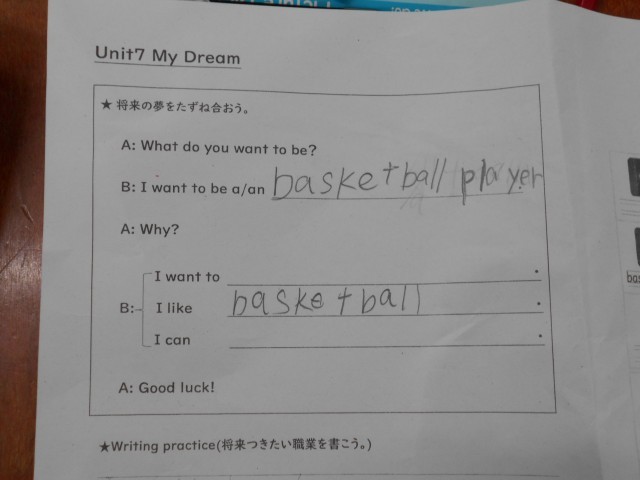 Unit7 My Dream
★ 将来の夢をたずね合おう。
A: What do you want to be?
B: I want to be a/an basketball player
A: Why?
I want to .
B: I like basketball .
I can .
A: Good luck!
★Writing practice(将来つきたい職業を書こう。)
bas